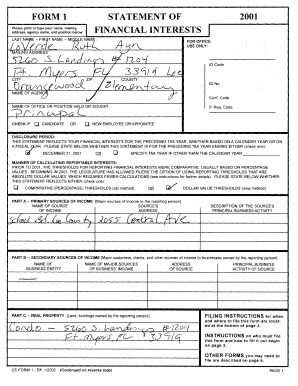 FORM 1
STATEMENT OF
FINANCIAL INTERESTS
2001
Please print or type your name, mailing
address, agency name, and position below:
FOR OFFICE
USE ONLY:
LAST NAME -- FIRST NAME -- MIDDLE NAME
LaVerde Ruth Ayn
MAILING ADDRESS
5260 S. Landings #1204
Ft. Myers FL 33919 Lee
CITY ZIP COUNTY
Orangewood Elementary
NAME OF AGENCY
NAME OF OFFICE OR POSITION HELD OR SOUGHT
Principal
CHECK IF CANDIDATE OR NEW EMPLOYEE OR APPOINTEE
ID Code
ID No.
Conf. Code
P. Req. Code
DISCLOSURE PERIOD:
THIS STATEMENT REFLECTS YOUR FINANCIAL INTERESTS FOR THE PRECEDING TAX YEAR, WHETHER BASED ON A CALENDAR YEAR OR ON
A FISCAL YEAR. PLEASE STATE BELOW WHETHER THIS STATEMENT IS FOR THE PRECEDING TAX YEAR ENDING EITHER (check one):
DECEMBER 31, 2001 OR SPECIFY TAX YEAR IF OTHER THAN THE CALENDAR YEAR:
MANNER OF CALCULATING REPORTABLE INTERESTS:
PRIOR TO 2001, THE THRESHOLDS FOR REPORTING FINANCIAL INTERESTS WERE COMPARATIVE, USUALLY BASED ON PERCENTAGE
VALUES. BEGINNING IN 2001, THE LEGISLATURE HAS ALLOWED FILERS THE OPTION OF USING REPORTING THRESHOLDS THAT ARE
ABSOLUTE DOLLAR VALUES, WHICH REQUIRES FEWER CALCULATIONS (see instructions for further details). PLEASE STATE BELOW WHETHER
THIS STATEMENT REFLECTS EITHER (check one):
COMPARATIVE (PERCENTAGE) THRESHOLDS (old method) OR DOLLAR VALUE THRESHOLDS (new method)
PART A -- PRIMARY SOURCES OF INCOME (Major sources of income to the reporting person)
NAME OF SOURCE OF INCOME
SOURCE'S ADDRESS
DESCRIPTION OF THE SOURCE'S PRINCIPAL BUSINESS ACTIVITY
School Bd. Lee County 2055 Central Ave
PART B -- SECONDARY SOURCES OF INCOME (Major customers, clients, and other sources of income to businesses owned by the reporting person)
NAME OF BUSINESS ENTITY
NAME OF MAJOR SOURCES OF BUSINESS' INCOME
ADDRESS OF SOURCE
PRINCIPAL BUSINESS ACTIVITY OF SOURCE
PART C -- REAL PROPERTY (Land, buildings owned by the reporting person)
Condo - 5260 S. Landings #1204
Ft. Myers, FL 33919
FILING INSTRUCTIONS for when
and where to file this form are located
at the bottom of page 2.
INSTRUCTIONS on who must file
this form and how to fill it out begin
on page 3.
OTHER FORMS you may need to
file are described on page 6.
CE FORM 1 - Eff. 1/2002 (Continued on reverse side) PAGE 1